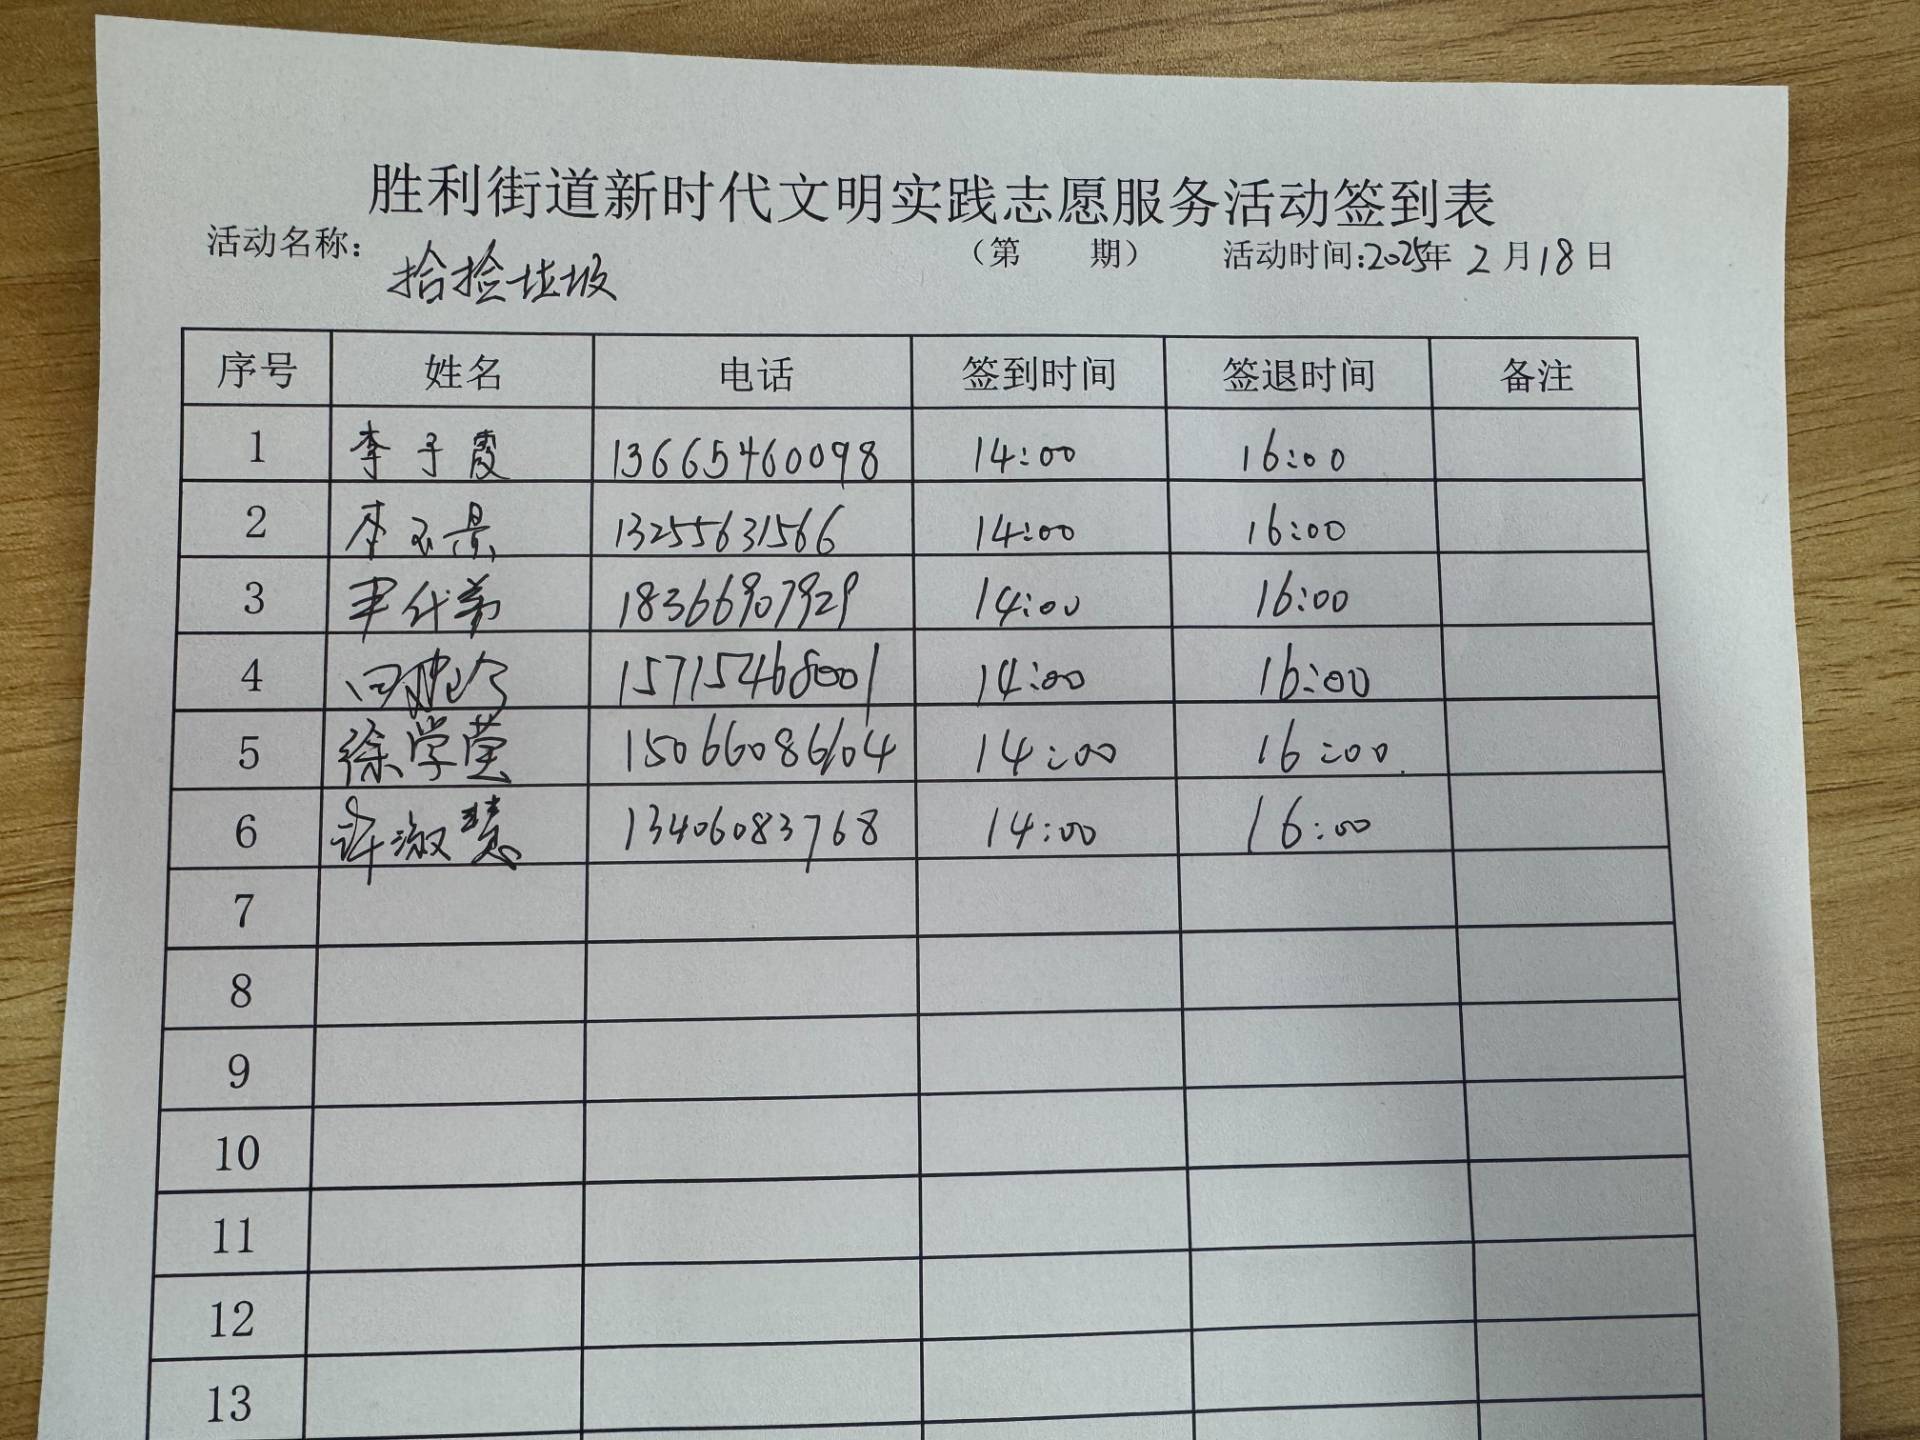 胜利街道新时代文明实践志愿服务活动签到表
活动名称：拾捡垃圾 （第 期） 活动时间：2025年 2 月 18 日
序号 姓名 电话 签到时间 签退时间 备注
1 李子霞 13665460098 14:00 16:00
2 李玉景 13255631566 14:00 16:00
3 18366907929 14:00 16:00
4 15715468001 14:00 16:00
5 徐学莹 15066086104 14:00 16:00
6 许淑慧 13406083768 14:00 16:00
7
8
9
10
11
12
13